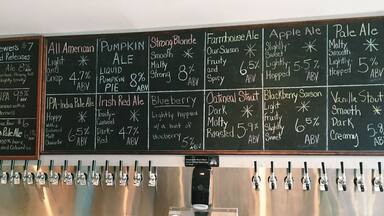 $7
All American
Light
and
Crisp
4.7%
ABV
PUMPKIN
ALE
LIQUID
PUMPKIN
PIE
8%
ABV
Strong Blonde
Smooth
Malty
Strong
8%
ABV
Farmhouse Ale
Our Saison
Fruity
and
Spicy
6.5%
ABV
Apple Ale
Slightly
Sweet
Slightly
Hopped
5.5%
ABV
Pale Ale
Malty
Smooth
Lightly
Hopped
5%
ABV
IPA-India Pale Ale
Hoppy
6.5%
ABV
Irish Red Ale
Malty
Dark-
Red
4.4%
ABV
Blueberry
Lightly hopped
w/ a hint
of
Blueberry
5%
ABV
Oatmeal Stout
Dark
Malty
Roasted
5.9%
ABV
Blackberry Saison
Fruity
Slightly
Sour
6.5%
ABV
Vanilla Stout
Smooth
Dark
Creamy
5%
ABV